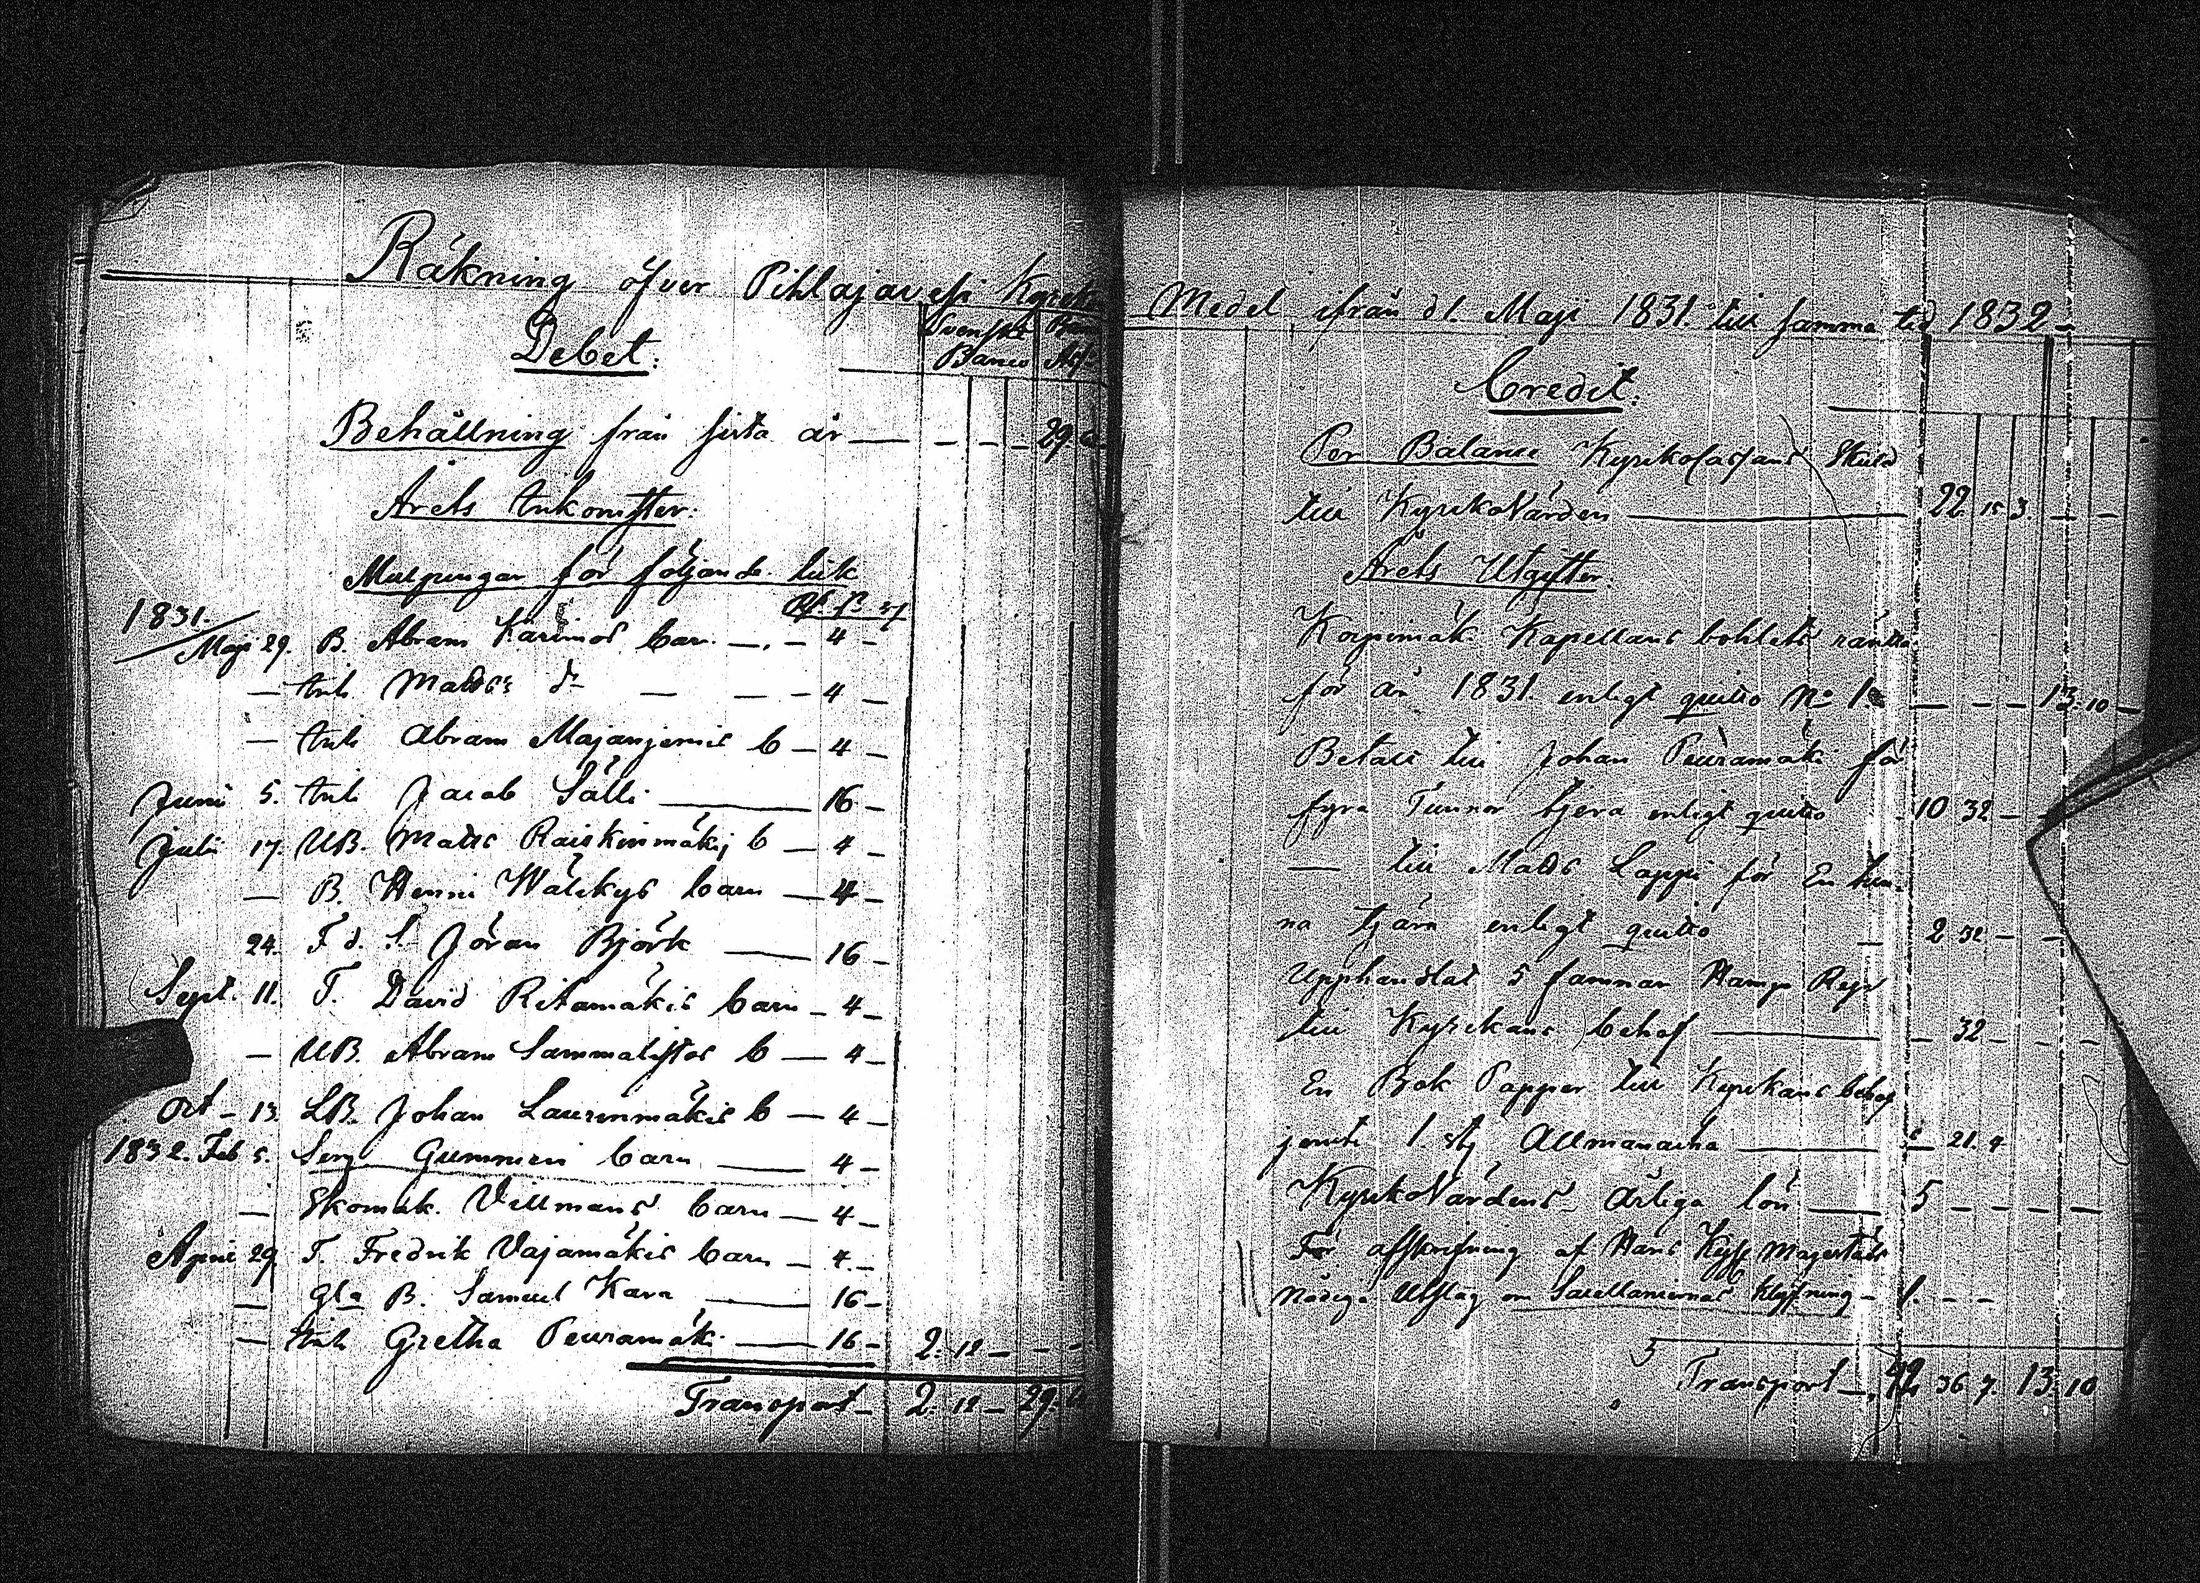 Räkning öfver Pihlajavesi Kyrko
Debet:
Svenska Banco
Banco Ass:
Behållning från sista år — — — — 29.
Årets Inkomster:
Mullpengar för följande Lik
1831.
Maji 29. B. Abram Karimos barn — . — 4 —
— Inh. Matts's d:o — — — 4 —
— Inh. Abram Majanjemis b — 4 —
Juni 5. Inh. Jacob Sälli — 16 —
Juli 17. UB. Matts Raiskinmäkis b — 4 —
— B. Henric Wälikys barn — 4 —
24. F. d. S. Jöran Björk — 16 —
Sept. 11. T. David Ritamäkis barn — 4 —
— UB. Abram Sammalistos b — 4 —
Oct — 13. LB. Johan Laurinmäkis b — 4 —
1832. Feb 5. Serg. Gummeri barn — 4 —
— Skomak. Villmans barn — 4 —
April 29. T. Fredrik Vajamäkis barn — 4 —
— Gla B. Samuel Kara — 16 —
— Inh. Gretha Peuramäki — 16 — 2. 12 — — —
Transport — 2. 12 — 29.
Medel ifrån d 1. Maji 1831. till samma tid 1832 —
Credit:
Per Balance Kyrkokassans Skuld
till Kyrkovärden — 22. 15 3. — —
Årets Utgifter:
Korpimäki Kapellans bohlets ränta
för år 1831. enligt quitto No 1 — — — 13. 10 —
Betalt till Johan Peuramäki för
fyra Tunnor tjera enligt quitto 10 32 — —
— till Matts Lappi för En tun-
na tjära enligt quitto — 2 32 — —
Upphandlat 5 famnar Hamp Rep
till Kyrkans behof — — 32 — — —
En Bok Papper till Kyrkans behof
jemte 1 st Allmanacka — — 21. 4
Kyrkovärdens årliga lön — 5 — — — —
För afskrifning af Hans Kejs. Majestäts
Nådiga Utslag om Sacellaniernas Klyfning — 1. — —
Transport — 42 36 7. 13. 10